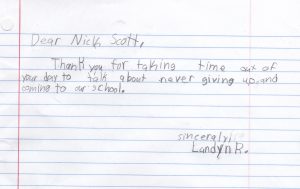 Dear Nick Scott,
Thank you for taking time out of
your day to talk about never giving up and
coming to our school.
sinceraly,
Landyn R.